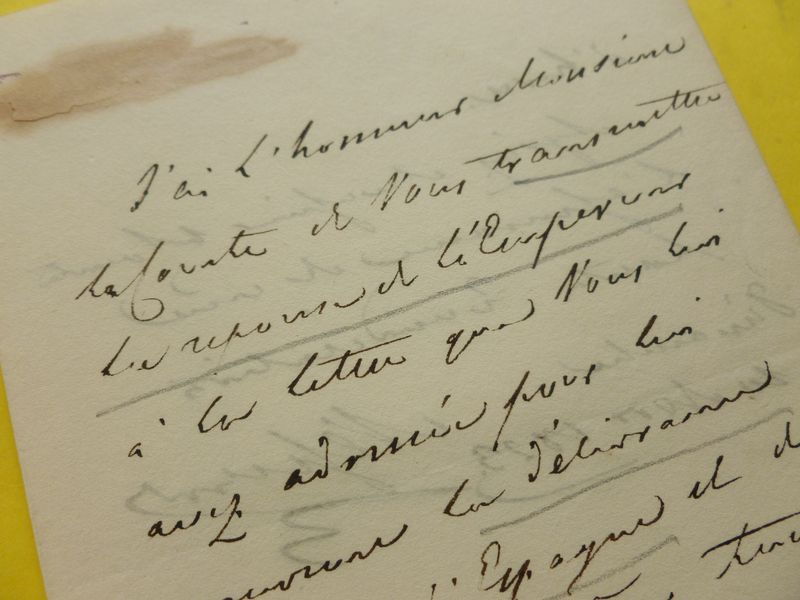 J'ai L'honneur Monsieur
le Comte de Vous transmettre
la reponse de L'Empereur
à la lettre que Vous lui
avez adressée pour lui
la délivrance
l'Espagne et d